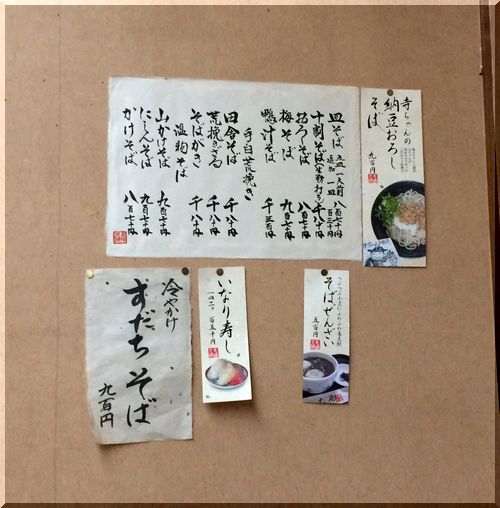 皿そば 五皿 一人前 八百七十円
追加 一皿 百三十円
十割そば(生粉打ち) 千八十円
おろしそば 八百七十円
梅そば 九百七十円
鴨汁そば 千三百円
手臼荒挽き
田舎そば 千八十円
荒挽きざる 千八十円
そばがき 千八十円
温物そば
山かけそば 九百七十円
にしんそば 九百七十円
かけそば 八百七十円
寺ちゃんの
納豆おろし
そば
九百円
冷やかけ
すだちそば
九百円
いなり寿し
一皿二ケ 百五十円
そばぜんざい
五百円